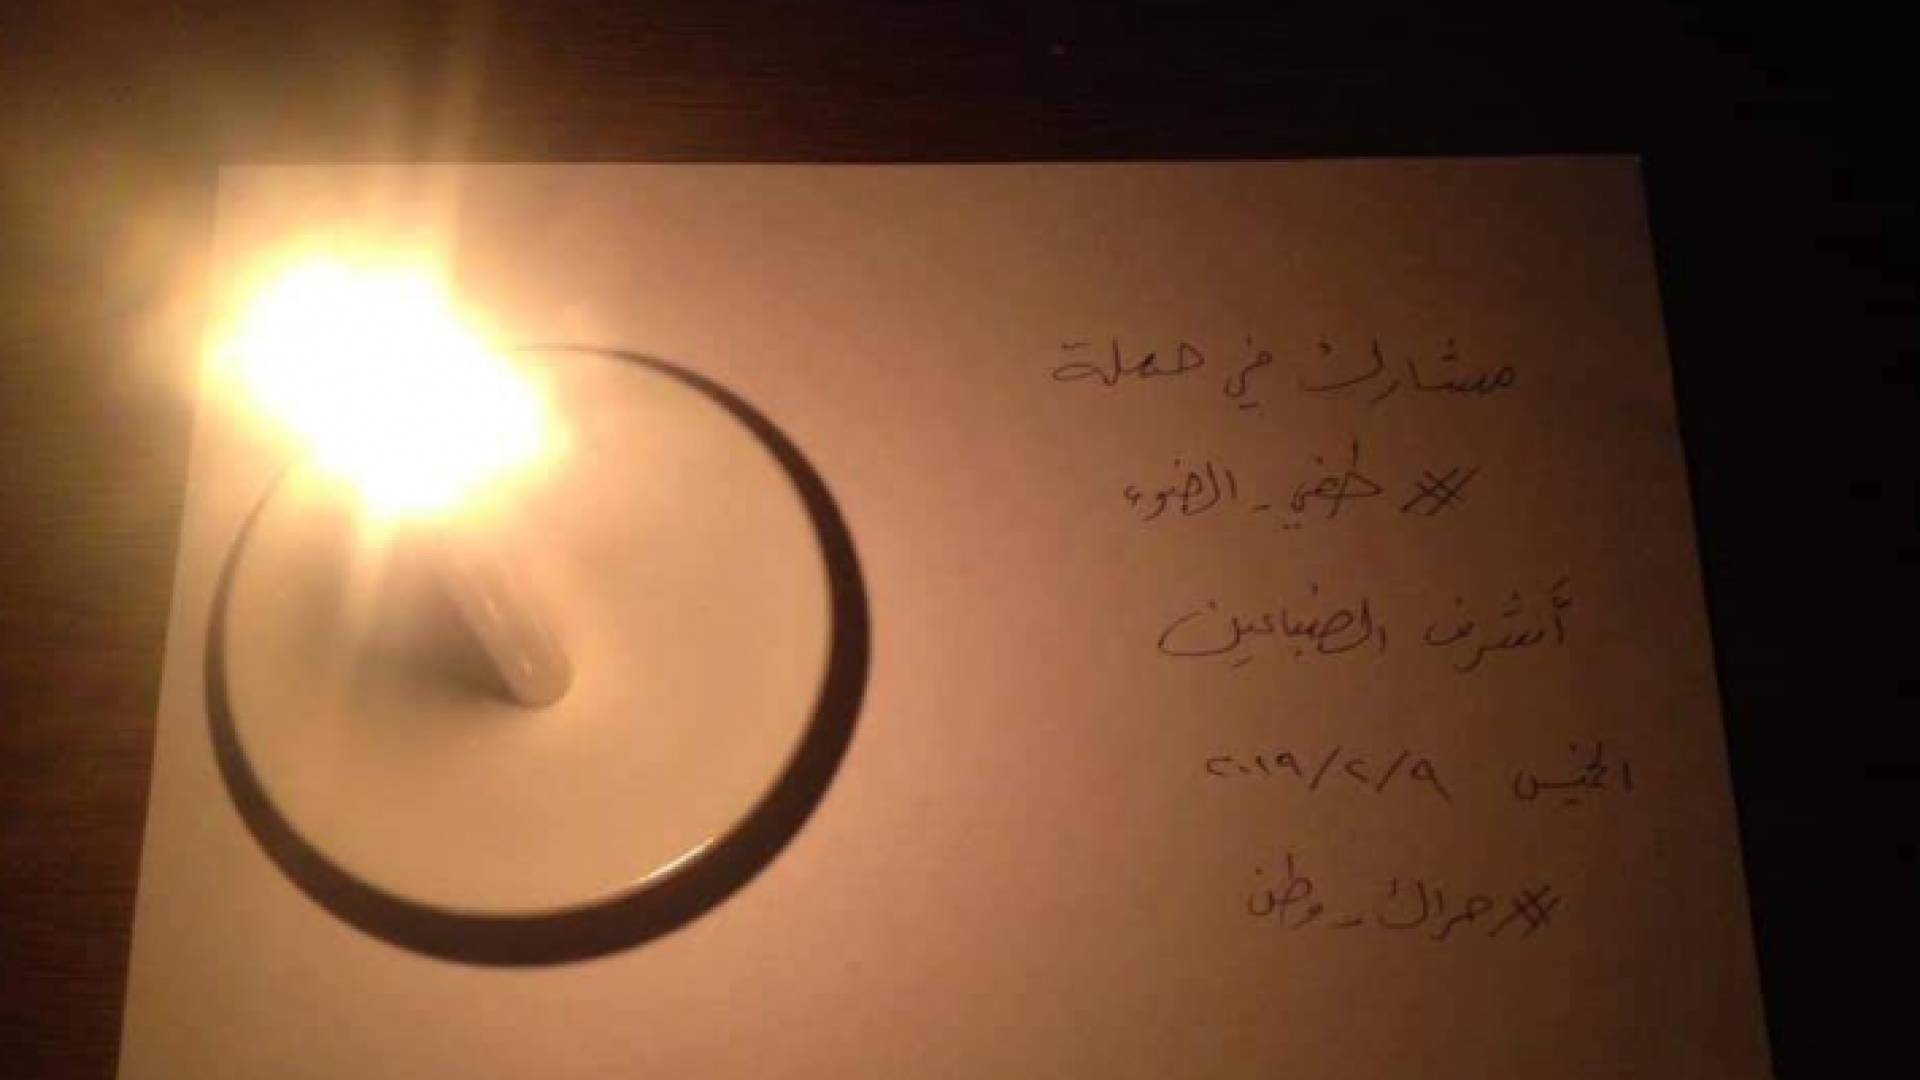 مشارك في حملة
#طفي_الضوء
أشرف الضباعين
الخميس ٢٠١٩/٢/٩
#حراك_وطن